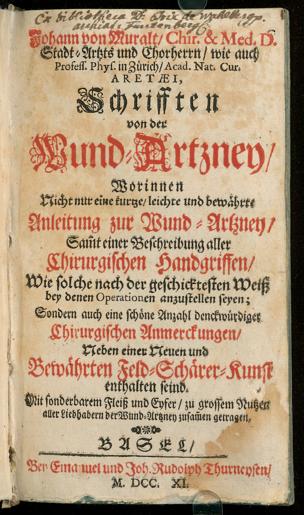 Ex bibliotheca
Johann von Muralt / Chir. & Med. D.
Stadt-Artzts und Chorherrn / wie auch
Profess. Phys. in Zürich / Acad. Nat. Cur.
ARETÆI,
Schrifften
von der
Wund-Artzney /
Worinnen
Nicht nur eine kurtze / leichte und bewährte
Anleitung zur Wund-Artzney /
Sam̃t einer Beschreibung aller
Chirurgischen Handgriffen /
Wie solche nach der geschicktesten Weiß
bey denen Operationen anzustellen seyen;
Sondern auch eine schöne Anzahl denckwürdiger
Chirurgischen Anmerckungen /
Neben einer Neuen und
Bewährten Feld-Schärer-Kunst
enthalten seind.
Mit sonderbarem Fleiß und Eyfer / zu grossem Nutzen
aller Liebhabern der Wund-Artzney zusam̃en getragen.
BASEL /
Bey Emanuel und Joh. Rudolph Thurneysen /
M. DCC. XI.